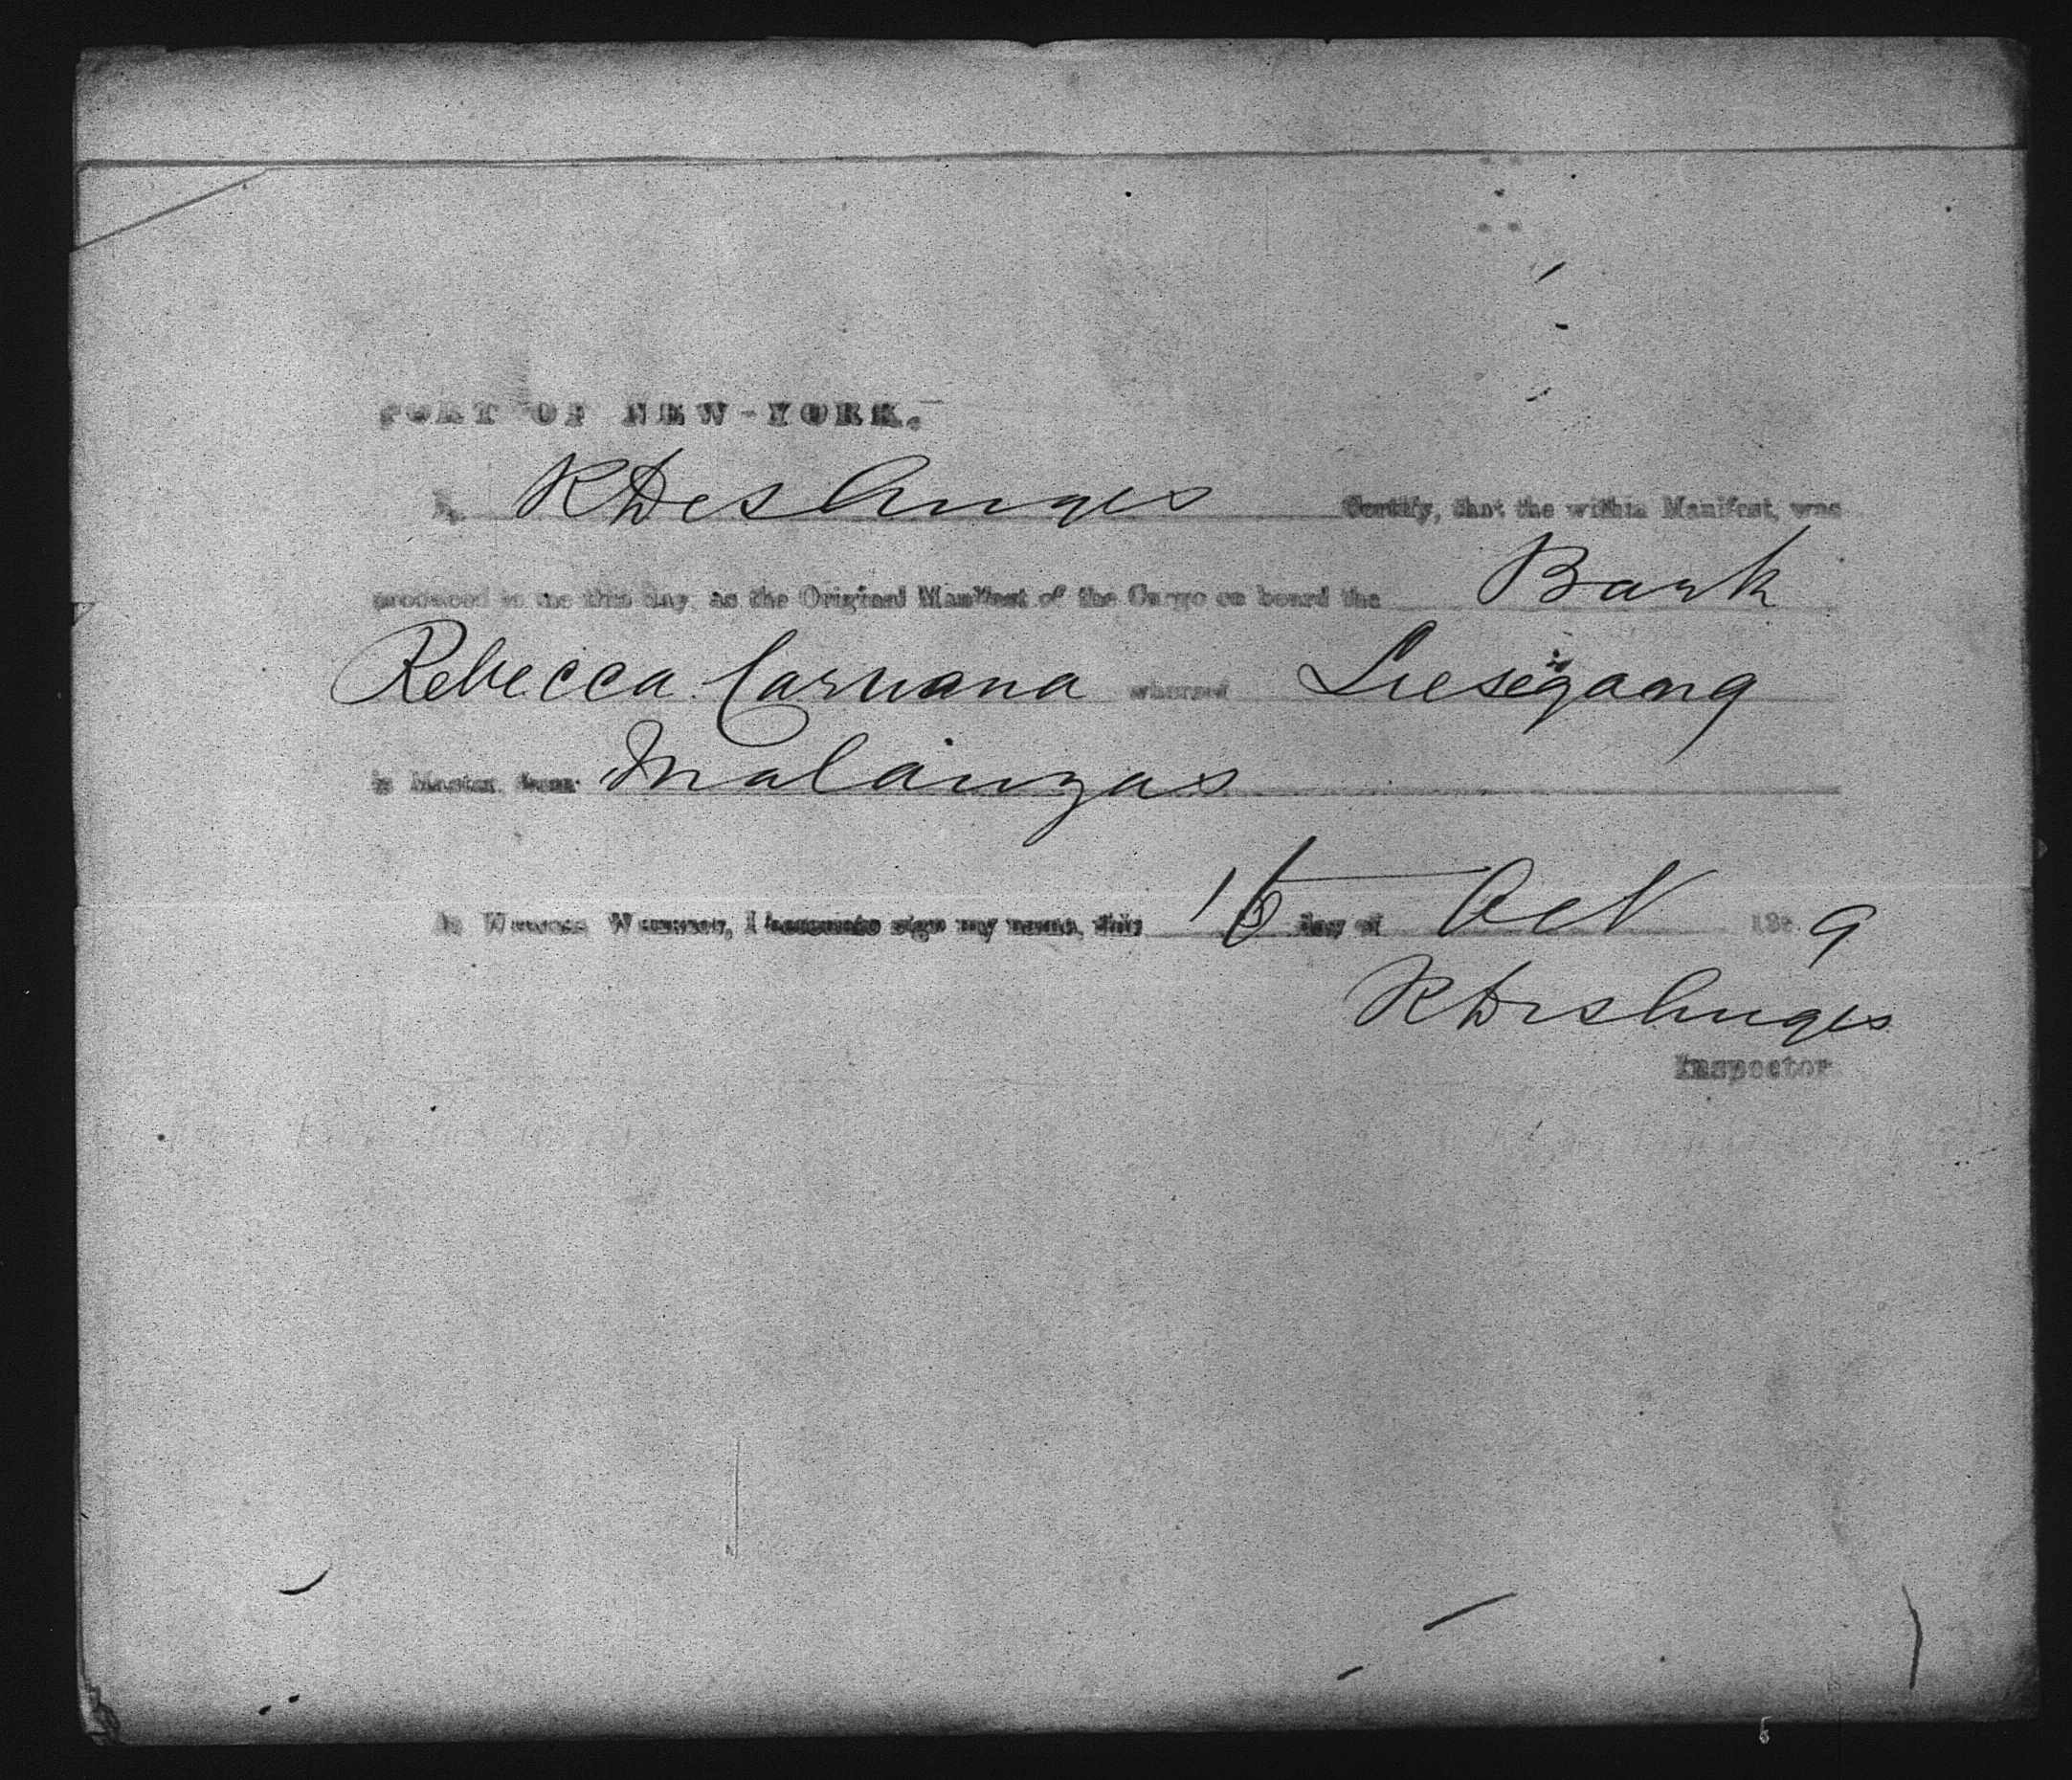 PORT OF NEW-YORK.
I, R Des Anges Certify, that the within Manifest, was
produced to me this day, as the Original Manifest of the Cargo on board the Bark
Rebecca Caruana whereof Liesegang
is Master from
In Witness Whereof, I hereunto sign my name, this day of Oct 188 9
R Des Anges
Inspector